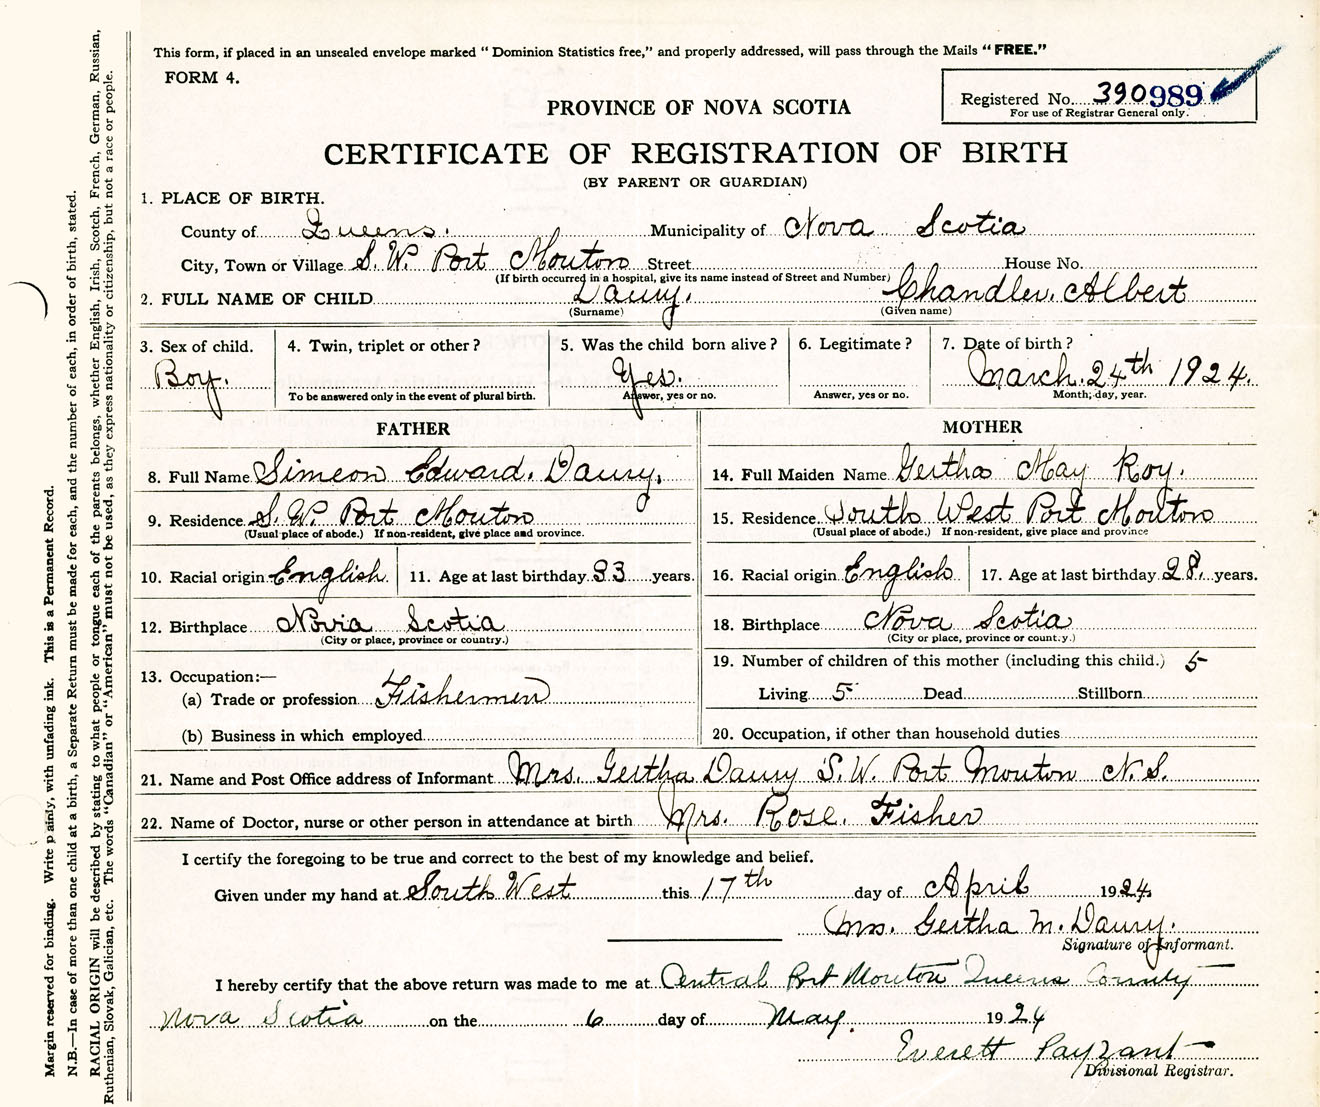 This form, if placed in an unsealed envelope marked “ Dominion Statistics free,” and properly addressed, will pass through the Mails “ FREE.”
FORM 4.
Registered No. 390989
For use of Registrar General only.
PROVINCE OF NOVA SCOTIA
CERTIFICATE OF REGISTRATION OF BIRTH
(BY PARENT OR GUARDIAN)
1. PLACE OF BIRTH.
County of Queens. Municipality of Nova Scotia
City, Town or Village S. W. Port Mouton Street House No.
(If birth occurred in a hospital, give its name instead of Street and Number)
2. FULL NAME OF CHILD Daury. Chandler. Albert
(Surname) (Given name)
3. Sex of child. 4. Twin, triplet or other ? 5. Was the child born alive ? 6. Legitimate ? 7. Date of birth ?
Boy. Yes. March. 24th 1924.
To be answered only in the event of plural birth. Answer, yes or no. Answer, yes or no. Month, day, year.
FATHER
8. Full Name Simeon Edward. Daury.
9. Residence S. W. Port Mouton
(Usual place of abode.) If non-resident, give place and province.
10. Racial origin English 11. Age at last birthday 33 years.
12. Birthplace Novia Scotia
(City or place, province or country.)
13. Occupation:—
(a) Trade or profession Fishermen
(b) Business in which employed
MOTHER
14. Full Maiden Name Gertha May Roy.
15. Residence South West Port Mouton
(Usual place of abode.) If non-resident, give place and province
16. Racial origin English 17. Age at last birthday 28. years.
18. Birthplace Nova Scotia
(City or place, province or country.)
19. Number of children of this mother (including this child.) 5
Living 5 Dead Stillborn
20. Occupation, if other than household duties
21. Name and Post Office address of Informant Mrs. Gertha Daury S. W. Port Mouton N. S.
22. Name of Doctor, nurse or other person in attendance at birth Mrs. Rose. Fisher
I certify the foregoing to be true and correct to the best of my knowledge and belief.
Given under my hand at South West this 17th day of April 1924
Mrs. Gertha M. Daury.
Signature of Informant.
I hereby certify that the above return was made to me at Central Port Mouton Queens County
Nova Scotia on the 6 day of May. 1924
Everett Payzant
Divisional Registrar.
Margin reserved for binding. Write plainly, with unfading ink. This is a Permanent Record.
N.B.—In case of more than one child at a birth, a Separate Return must be made for each, and the number of each, in order of birth, stated.
RACIAL ORIGIN will be described by stating to what people or tongue each of the parents belongs, whether English, Irish, Scotch, French, German, Russian,
Ruthenian, Slovak, Galician, etc. The words “Canadian” or “American” must not be used, as they express nationality or citizenship, but not a race or people.